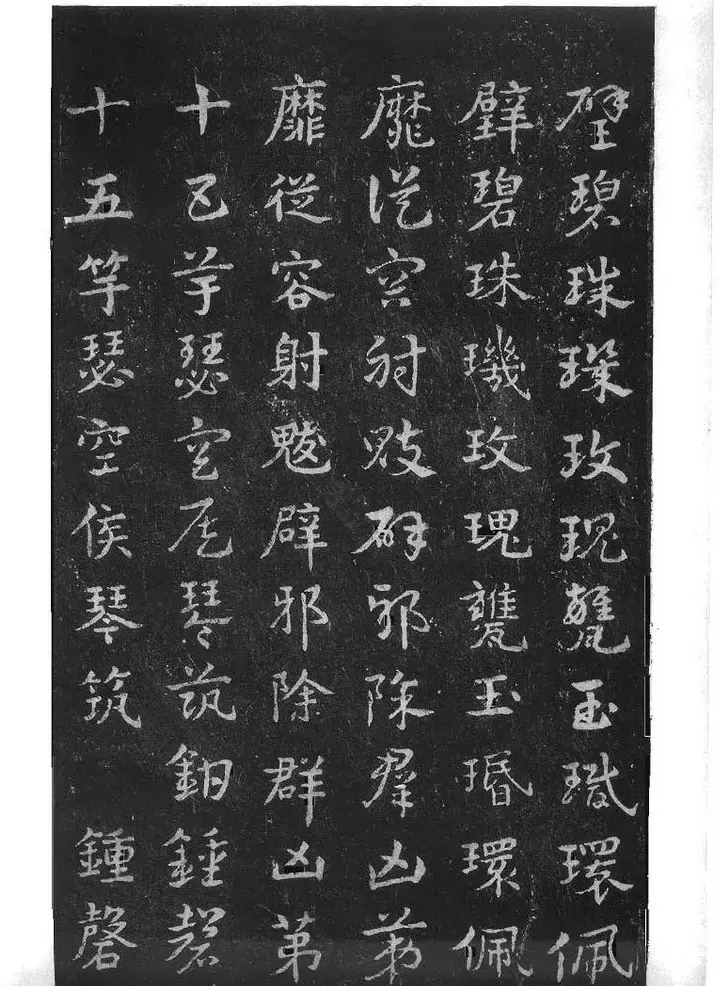 璧碧珠璣玫瑰甕玉瑉環佩
璧碧珠璣玫瑰甕玉瑉環佩
靡從容射鬾辟邪除群凶第
靡從容射鬾辟邪除群凶第
十五竽瑟空侯琴筑鈞鍾磬
十五竽瑟空侯琴筑 鍾磬